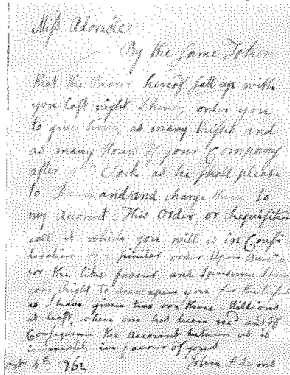 Miss Adorable
By the same Token
that the Bearer hereof satt up with
you last night I hereby order you
to give him, as many Kisses and
as many Hours of your Company
after 9 O'Clock as he shall please
to Demand and charge them to
my Account. This Order or Requisition
call it which you will is in Consi
deration of a similar order
for the like favour and I presume I have
good Right to draw upon you for the
as I have given two or three Millions
at least, when one has been rec'd and of
Consequence the Account between us is
immensely in favour of yours
4th 1762 John Adams